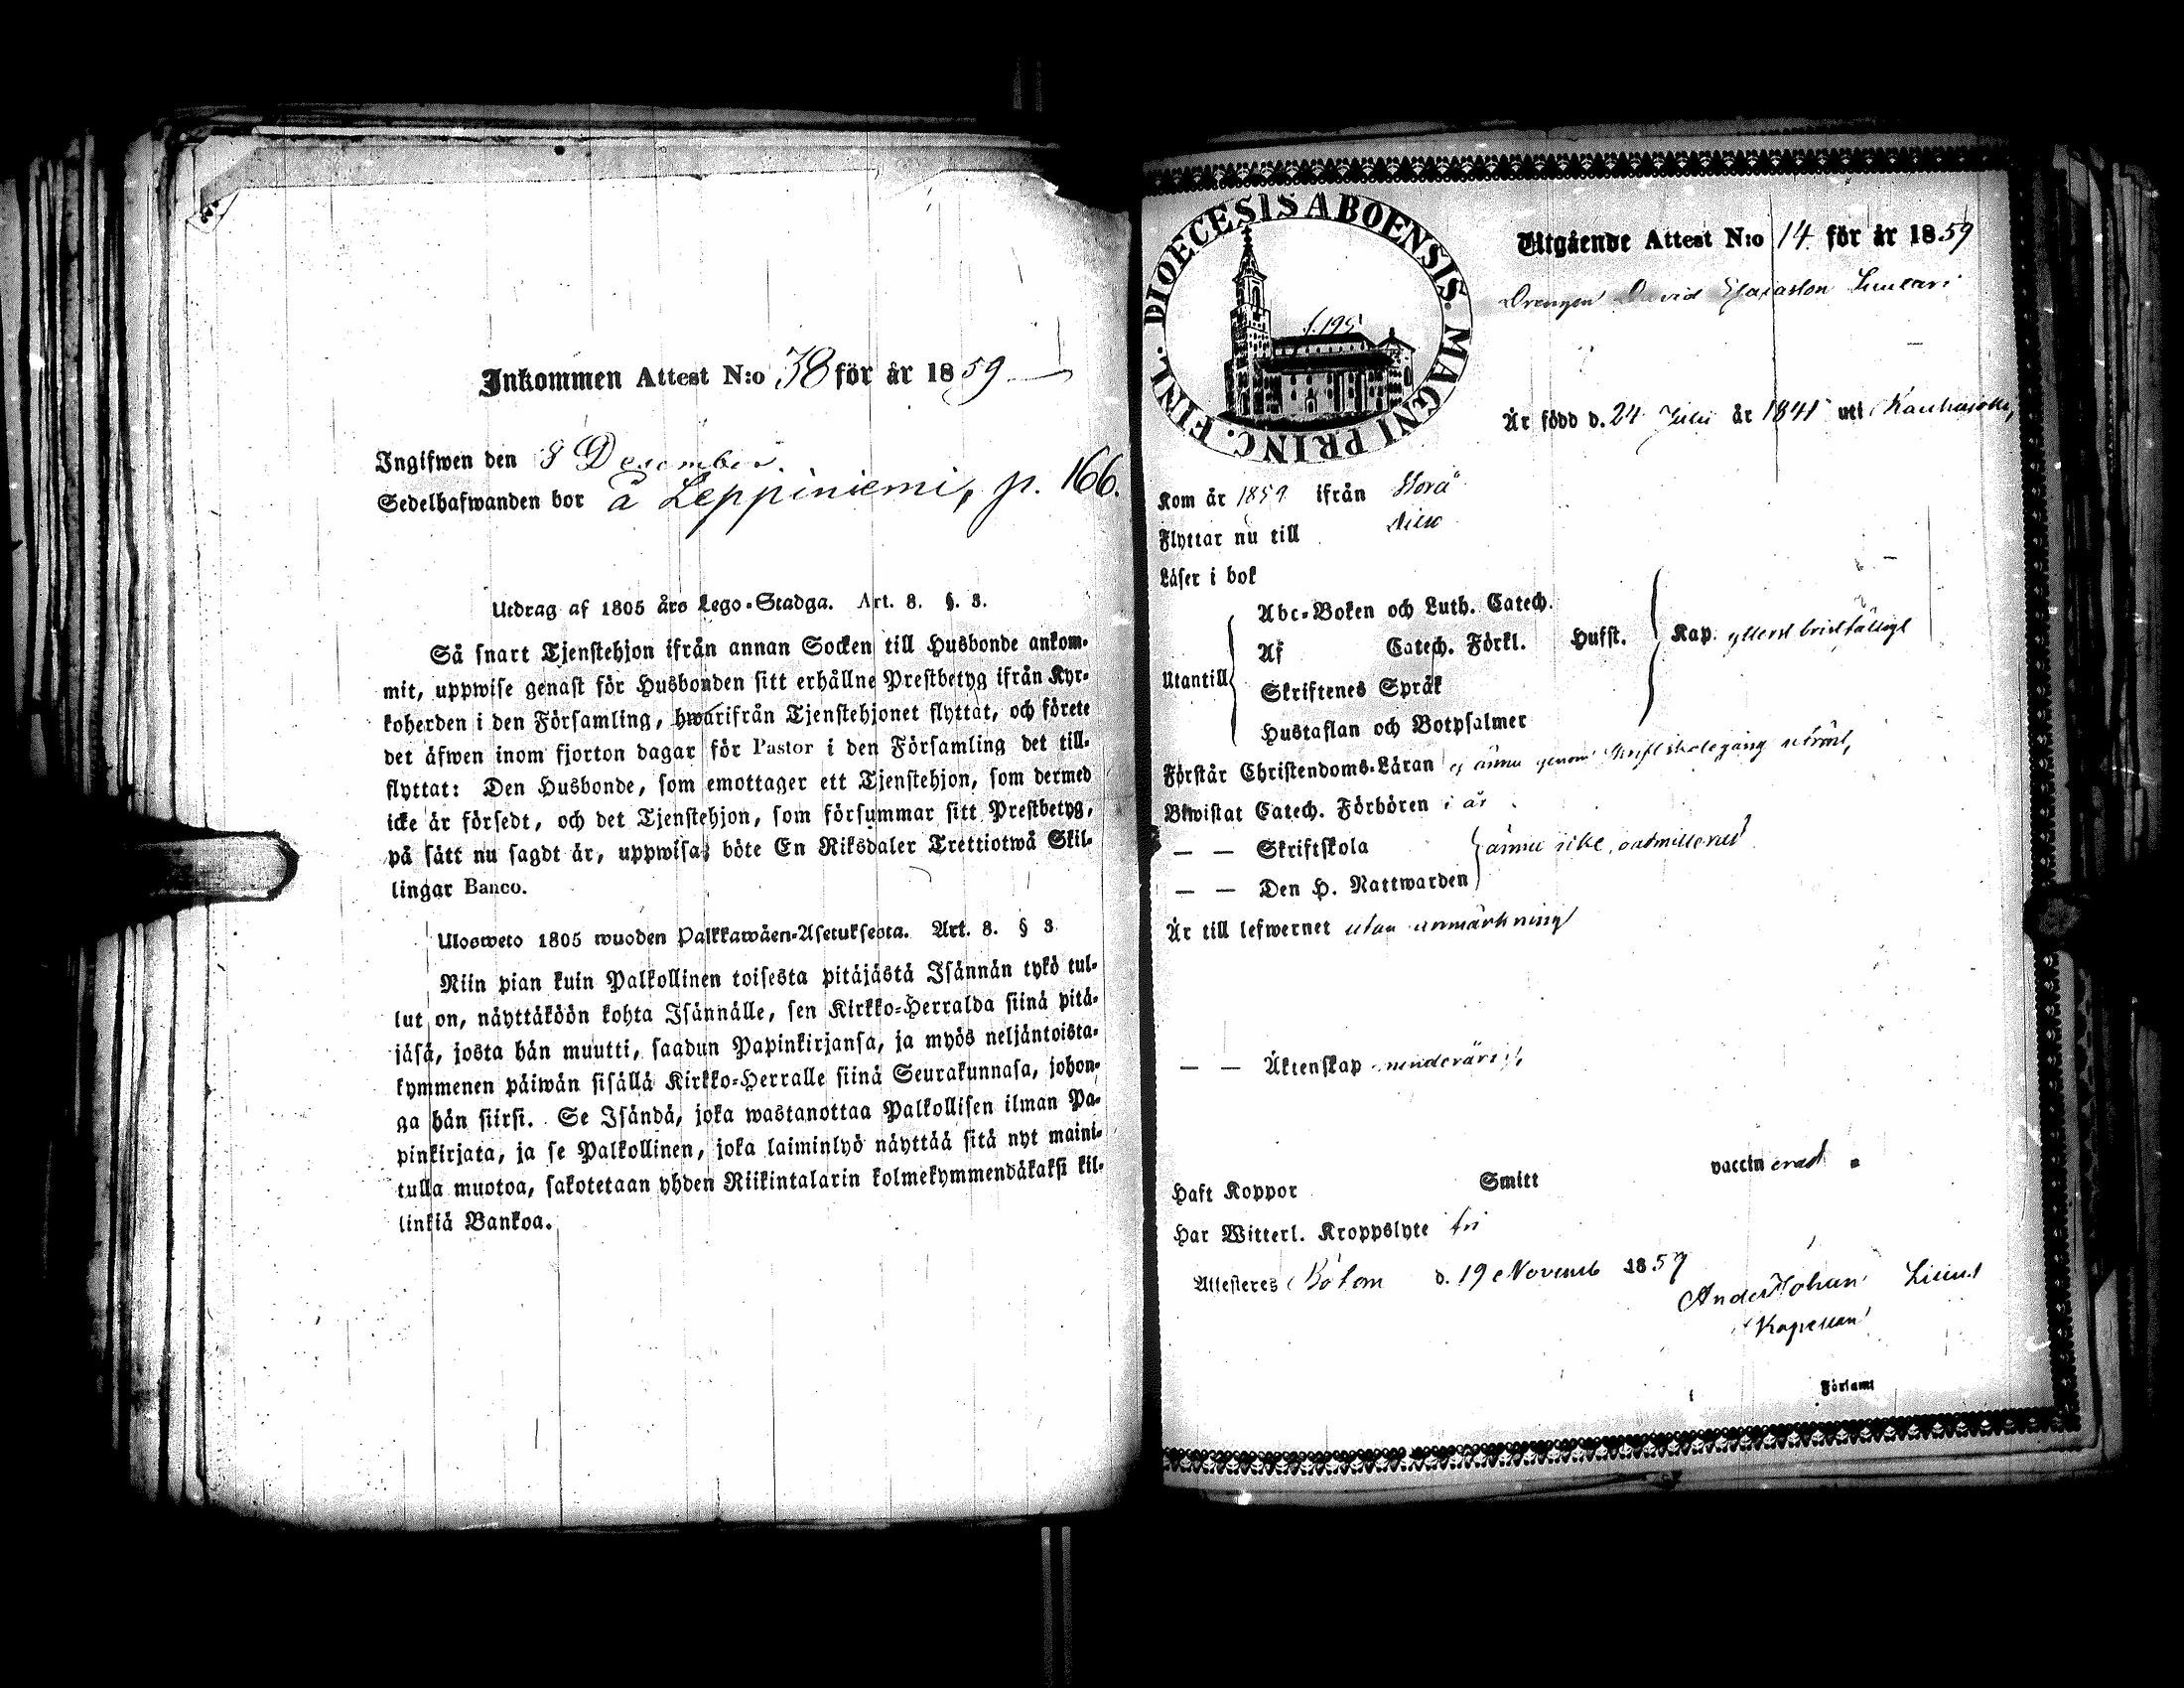 Inkommen Attest N:o 38 för år 1859
Ingifwen den 8 December.
Sedelhafwanden bor å Leppiniemi, p. 166.
Utdrag af 1805 års Lego-Stadga. Art. 8. §. 3.
Så snart Tjenstehjon ifrån annan Socken till Husbonde ankom-
mit, uppwise genast för Husbonden sitt erhållne Prestbetyg ifrån Kyr-
koherden i den Församling, hwarifrån Tjenstehjonet flyttat, och förete
det äfwen inom fjorton dagar för Pastor i den Församling det till-
flyttat: Den Husbonde, som emottager ett Tjenstehjon, som dermed
icke är försedt, och det Tjenstehjon, som försummar sitt Prestbetyg,
på sätt nu sagdt är, uppwisa, böte En Riksdaler Trettiotwå Skil-
lingar Banco.
Ulosweto 1805 wuoden Palkkawäen-Asetuksesta. Art. 8. § 3
Niin pian kuin Palkollinen toisesta pitäjästä Isännän tykö tul-
lut on, näyttäköön kohta Isännälle, sen Kirkko-Herralda siinä pitä-
jäsä, josta hän muutti, saadun Papinkirjansa, ja myös neljäntoista-
kymmenen päiwän sisällä Kirkko-Herralle siinä Seurakunnasa, johon-
ga hän siirsi. Se Isändä, joka wastanottaa Palkollisen ilman Pa-
pinkirjata, ja se Palkollinen, joka laiminlyö näyttää sitä nyt maini-
tulla muotoa, sakotetaan yhden Riikintalarin kolmekymmendäkaksi kil-
linkiä Bankoa.
DIOECESIS ABOENSIS. MAGNI PRINC. FINL.
Utgående Attest N:o 14 för år 1859
Drengen David
Är född d. 24 Julii år 1841 uti
Kom år 1859 ifrån
Flyttar nu till
Läser i bok
Abc-Boken och Luth. Catech.
Af Catech. Förkl. Husst. Kap. ytterst bristfälligt
Utantill
Skriftenes Språk
Hustaflan och Botpsalmer
Förstår Christendoms-Läran ej ännu genom Skriftskolegång
Biwistat Catech. Förhören i år
— — Skriftskola ännu icke admitterad
— — Den H. Nattwarden
Är till lefwernet utan anmärkning
— — Äktenskap minderårig,
Haft Koppor Smitt vaccinerad
Har Witterl. Kroppslyte fri
Attesteres d. 19 Novemb 1859
Kapellan
Församl